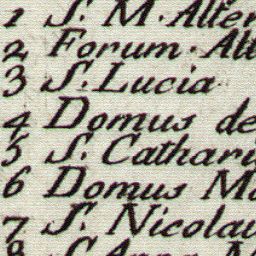 1 S. M. Alter
2 Forum. Alt
3 S. Lucia.
4 Domus de
5 S. Cathari
6 Domus Ma
7 S. Nicolau
8 S. Anna M